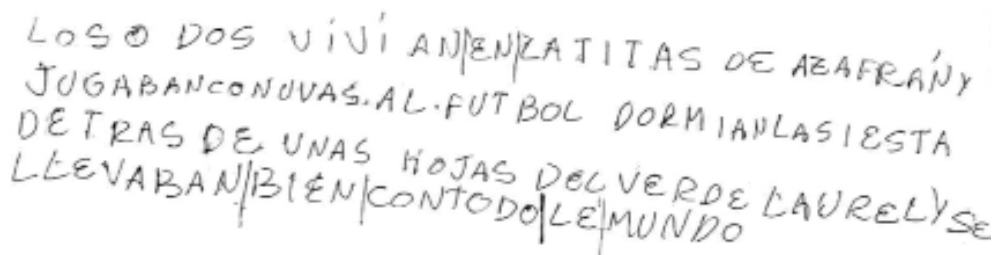 LOS O DOS ViVi AN|EN|LATITAS DE AZAFRÁNY
JUGABANCONUVAS.AL.FUTBOL DORMIANLASIESTA
DETRAS DE UNAS HOJAS DEL VERDE LAURELY SE
LLEVABAN|BIEN|CONTODO|LE|MUNDO